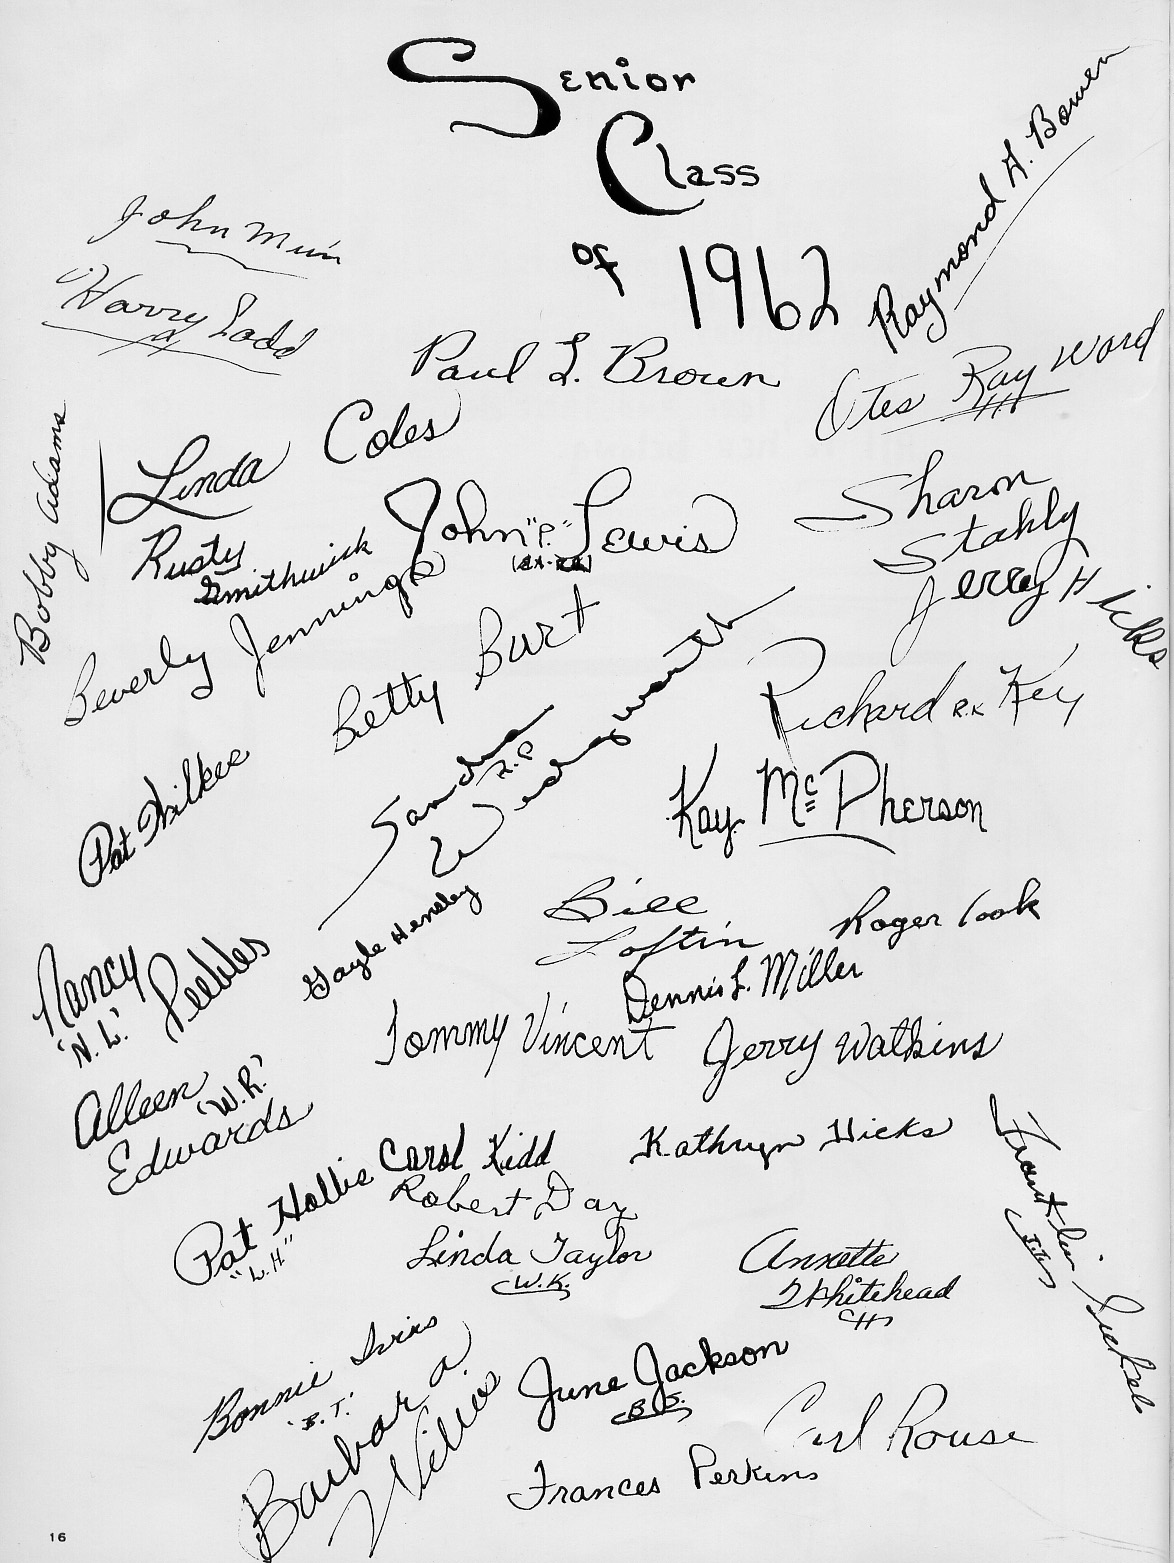 Senior
Class
of 1962
Raymond A. Bowen
John Muir
Harry Ladd
Paul L. Brown
Otes Ray Ward
Bobby Adams
Linda Coles
John "P." Lewis
Sharon
Stahly
Rusty
Smithwick
Jerry Hicks
Beverly Jennings
Betty Burt
Richard R.K. Key
Sandra
R.P.
Pat Wilkee
Kay Mc Pherson
Gayle Hensley
Bill
Loftin
Roger Cook
Nancy
'N.L.' Peebles
Dennis L. Miller
Tommy Vincent
Jerry Watkins
Alleen
'W.R.'
Edwards
Carol Kidd
Kathryn Hicks
Franklin
Pat Hollis
"L.H"
Robert Day
Linda Taylor
W.K.
Annette
Whitehead
H
Bonnie
'B.T.'
Barbara
June Jackson
B.S.
Carl Rouse
Frances Perkins
16